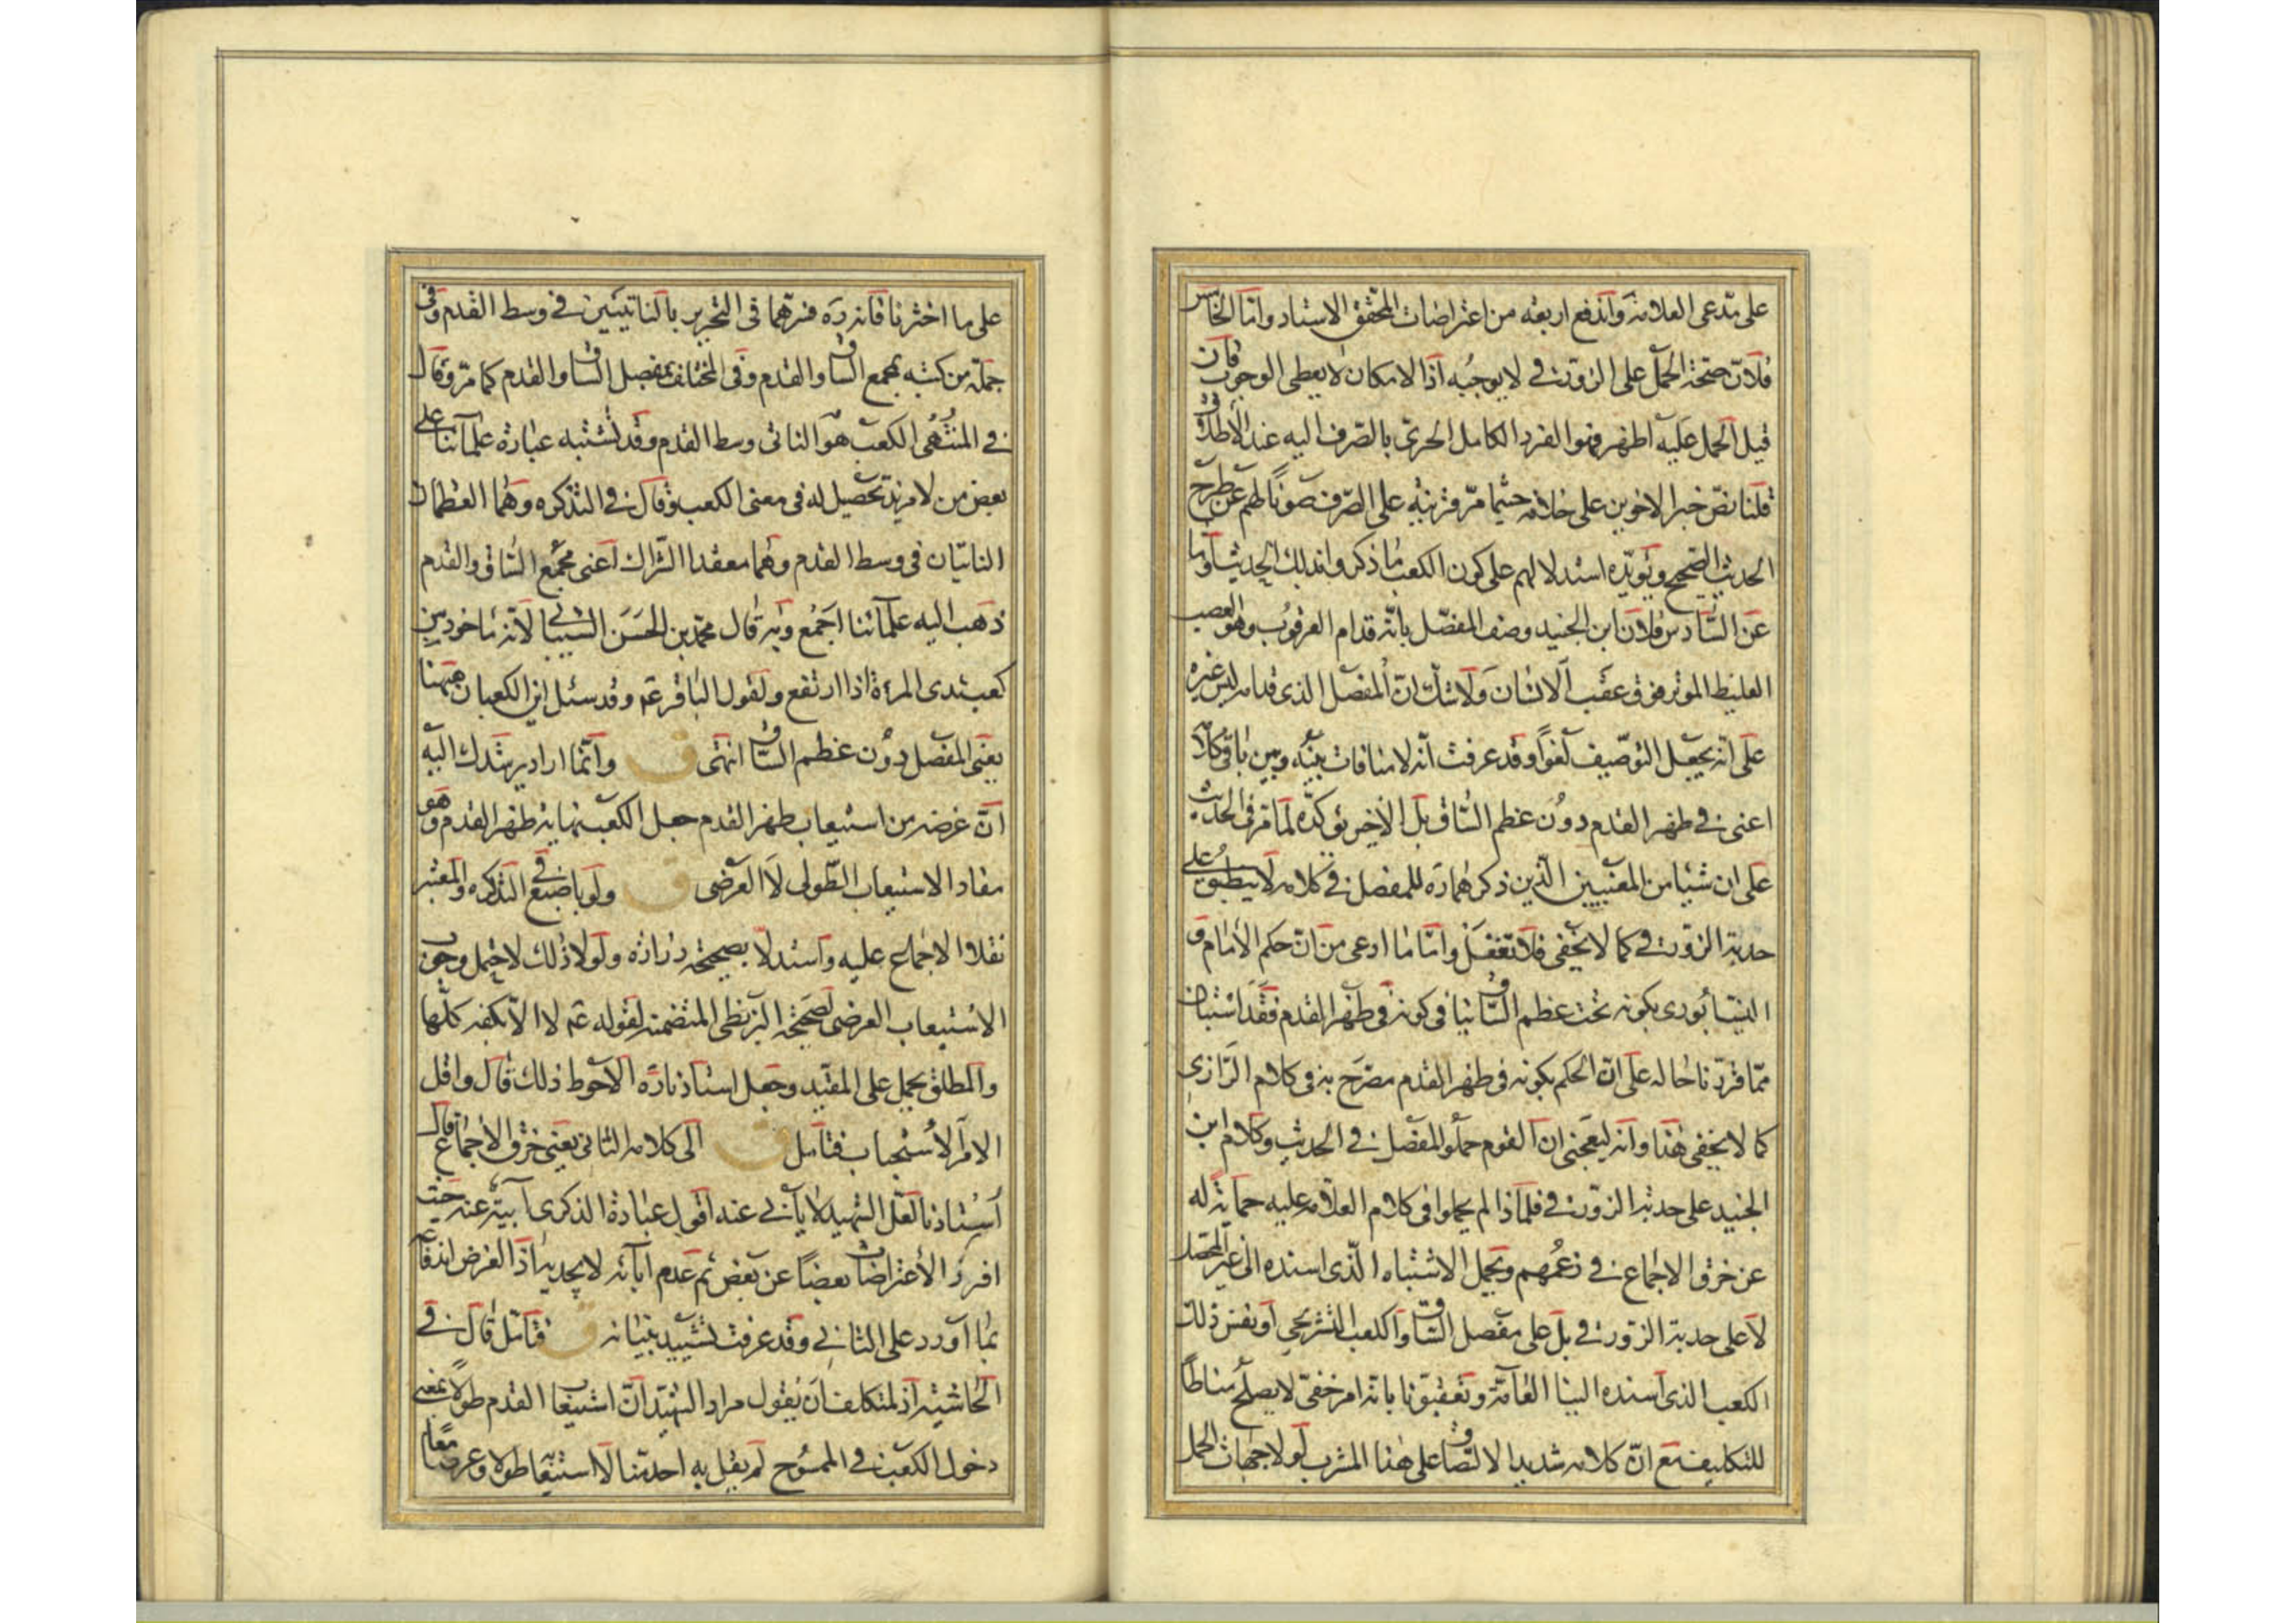 على مدعى العلامة واندفع اربعة من اعتراضات المحقق الاستاد واما الخامس
فلان صحة الحمل على الزورقى لا يوجبه اذ الامكان لا يعطى الوجوب فان
قيل الحمل عليه اظهر فهو الفرد الكامل الحرى بالصرف اليه عند الاطلاق
قلنا نص خبر الاخوين على خلافه حيثما مر قرينة على الصرف صونا لهم عن طرح
الحديث الصحيح ويؤيده استدلالهم على كون الكعب ما ذكروا بذلك الحديث واما
عن السادس فلان ابن الجنيد وصف المفصل بانه قدام العرقوب وهو العصب
الغليظ الموتر فوق عقب الانسان ولا شك ان المفصل الذى قدامه ليس غيره
على انه يجعل التوصيف لغوا وقد عرفت انه لا منافات بينه وبين باقى كلامه
اعنى فى ظهر القدم دون عظم الساق بل الاخير يؤكده لما مر فى الحديث
على ان شيئا من المعنيين الذين ذكرهما ره للمفصل فى كلامه لا ينطبق على
حدبة الزورقى كما لا يخفى فلا تغفل واما ما ادعى من ان حكم الامام و
النيشابورى بكونه تحت عظم الساق ينافى كونه فى ظهر القدم فقد استبان
مما قررنا حاله على ان الحكم بكونه فى ظهر القدم مصرح به فى كلام الرازى
كما لا يخفى هذا وانه ليعجبنى ان القوم حملوا المفصل فى الحديث وكلام ابن
الجنيد على حدبة الزورقى فلماذا لم يحملوا فى كلام العلامه عليه حماية له
عن خرق الاجماع فى زعمهم ويحمل الاشتباه الذى اسنده الى غير المحصل
لا على حدبة الزورقى بل على مفصل الساق او الكعب التشريحى او نفس ذلك
الكعب الذى اسنده الينا العامة وتعقبونا بانه امر خفى لا يصلح مناطا
للتكليف مع ان كلامه شديد الالتصاق على هذا المشرب لولا جهات الحمل
على ما اخترنا فانه ره فسرهما فى التحرير بالناتيين فى وسط القدم وفى
جملة من كتبه بمجمع الساق والقدم وفى المختلف بمفصل الساق والقدم كما مر وقال
فى المنتهى الكعب هو الناتى وسط القدم وقد تشتبه عبارة علمائنا على
بعض من لا مزيد تحصيل له فى معنى الكعب وقال فى التذكره وهما العظمان
الناتيان فى وسط القدم وهما معقد الشراك اعنى مجمع الساق والقدم
ذهب اليه علمائنا اجمع وبه قال محمد بن الحسن الشيبانى لانه ماخوذ من
كعب ثدى المرءة اذا ارتفع ولقول الباقر عم وقد سئل اين الكعبان ههنا
يعنى المفصل دون عظم الساق انتهى ق وانما اراد يرشدك اليه
ان غرضه من استيعاب ظهر القدم جعل الكعب نهاية ظهر القدم وهو
مفاد الاستيعاب الطولى لا العرضى ق ولو باصبع فى التذكره والمعتبر
نقلا الاجماع عليه واستدلا بصحيحة زراره ولولا ذلك لاحتمل وجوب
الاستيعاب العرضى لصحيحة البزنطى المتضمنة لقوله عم لا الا بكفه كلها
والمطلق يحمل على المقيد وجعل استاذنا ره الاحوط ذلك قال واقل
الامر الاستحباب فتامل ق الى كلامه الثانى يعنى خرق الاجماع قال
استاذنا لعل الشهيد لا يأبى عنه اقول عبارة الذكرى آبية عنه حيث
افرز الاعتراضات بعضا عن بعض ثم عدم ابائه لا يجديه اذ الغرض اندفاع
بما اورد على الثانى وقد عرفت تشييد بنيانه ق فتامل قال فى
الحاشيه اذ لمتكلف ان يقول مراد الشهيد ان استيعاب القدم طولا بمعنى
دخول الكعب فى الممسوح لم يقل به احد منا لا استيعابه طولا وعرضا معا